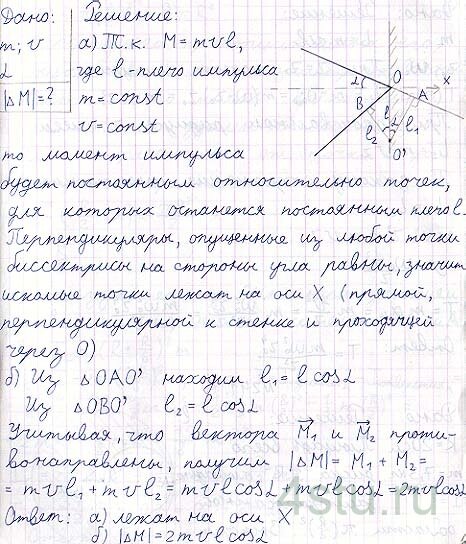 Дано: Решение:
m; v а) Т.к. M = mvl,
α где l - плечо импульса
|ΔM| = ? m = const
v = const
то момент импульса
будет постоянным относительно точек,
для которых останется постоянным плечо l.
Перпендикуляры, опущенные из любой точки
биссектрисы на стороны угла равны, значит
искомые точки лежат на оси X (прямой,
перпендикулярной к стенке и проходящей
через O)
б) Из ΔOAO' находим l₁ = l cosα
Из ΔOBO' l₂ = l cosα
Учитывая, что вектора M⃗₁ и M⃗₂ проти-
вонаправлены, получим |ΔM| = M₁ + M₂ =
= mvl₁ + mvl₂ = mvl cosα + mvl cosα = 2mvl cosα
Ответ: а) лежат на оси X
б) |ΔM| = 2mvl cosα
α O A x
B l₂ l l₁
O'
4stu.ru